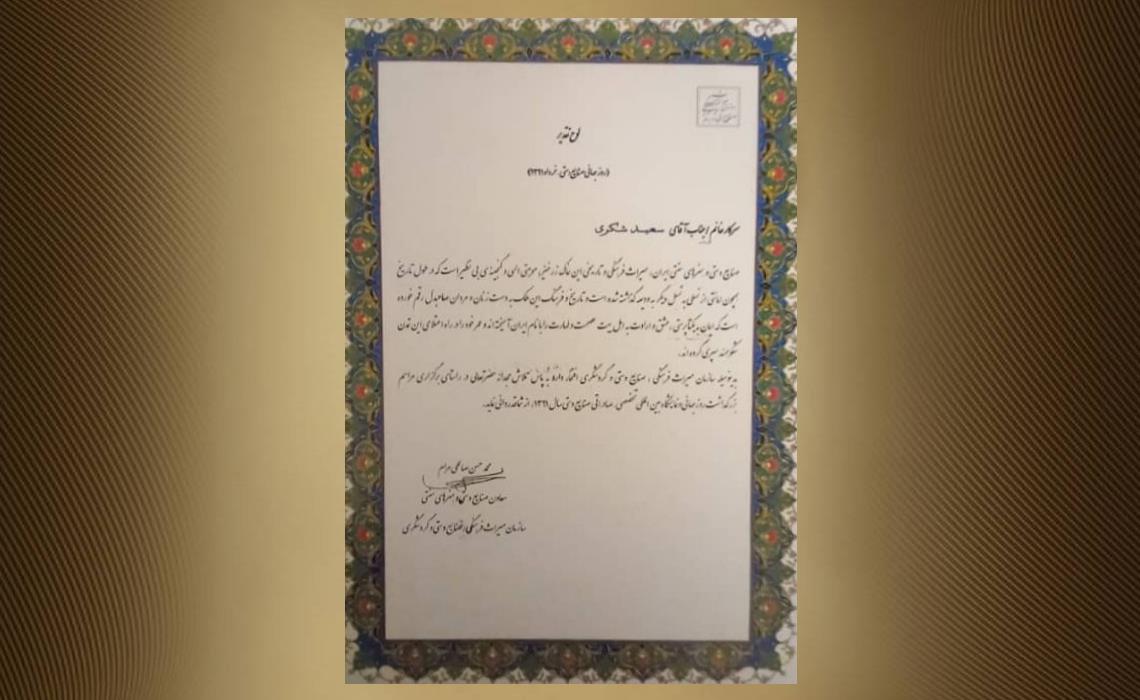 لوح تقدیر
(روز جهانی صنایع دستی، خرداد ۱۳۹۱)
سرکار خانم / جناب آقای سعید شکری
صنایع دستی و هنرهای سنتی ایران، میراث فرهنگی و تاریخی این خاک زرخیز، موهبتی الهی و گنجینه ای بی نظیر است که در طول تاریخ
همچون امانتی از نسلی به نسل دیگر به ودیعه گذاشته شده است و تاریخ و فرهنگ این ملک به دست زنان و مردان صاحبدل رقم خورده
است که ایمان به یکتاپرستی، عشق و ارادت به اهل بیت عصمت و طهارت را با نام ایران آمیخته اند و عمر خود را در راه اعتلای این تمدن
شکوهمند سپری کرده اند.
بدینوسیله سازمان میراث فرهنگی، صنایع دستی و گردشگری افتخار دارد به پاس تلاش مجدانه حضرتعالی در راستای برگزاری مراسم
بزرگداشت روز جهانی و نمایشگاه بین المللی تخصصی، صادراتی صنایع دستی سال ۱۳۹۱، از شما قدردانی نماید.
محمد حسن صالحی مرام
معاون صنایع دستی و هنرهای سنتی
سازمان میراث فرهنگی، صنایع دستی و گردشگری